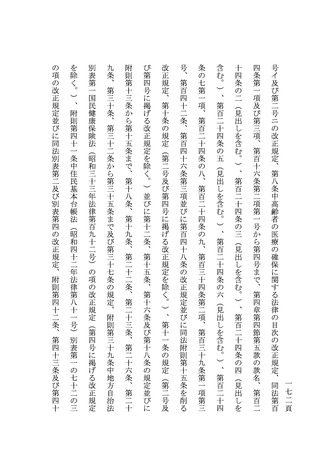 一七二頁
号イ及び第二号ニの改正規定、第八条中高齢者の医療の確保に関する法律の目次の改正規定、同法第百
四条第一項及び第三項、第百十六条第二項第一号から第四号まで、第四章第四節第五款の款名、第百二
十四条の二（見出しを含む。）、第百二十四条の三（見出しを含む。）、第百二十四条の四（見出しを
含む。）、第百二十四条の五（見出しを含む。）、第百二十四条の六（見出しを含む。）、第百二十四
条の七第一項、第百二十四条の八、第百二十四条の九、第百三十四条第二項、第百三十九条第一項第三
号、第百四十二条、第百四十六条第三項並びに第百四十八条の改正規定並びに同法附則第十五条を削る
改正規定、第十条の規定（第二号及び第四号に掲げる改正規定を除く。）、第十一条の規定（第二号及
び第四号に掲げる改正規定を除く。）並びに第十二条、第十五条、第十六条及び第十八条の規定並びに
附則第十三条から第十五条まで、第十八条、第十九条、第二十二条、第二十三条、第二十六条、第二十
九条、第三十条、第三十二条から第三十五条まで及び第三十七条の規定、附則第三十九条中地方自治法
別表第一国民健康保険法（昭和三十三年法律第百九十二号）の項の改正規定（第四号に掲げる改正規定
を除く。）、附則第四十一条中住民基本台帳法（昭和四十二年法律第八十一号）別表第一の七十二の三
の項の改正規定並びに同法別表第二及び別表第四の改正規定、附則第四十二条、第四十三条及び第四十